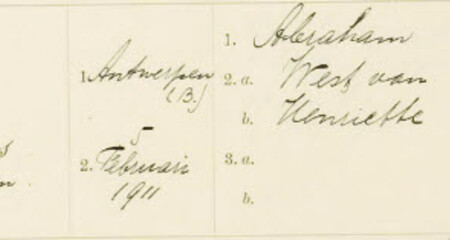 1. Antwerpen
(B.)
5
2. Februari
1911
1. Abraham
2. a. West van
b. Henriette
3. a.
b.